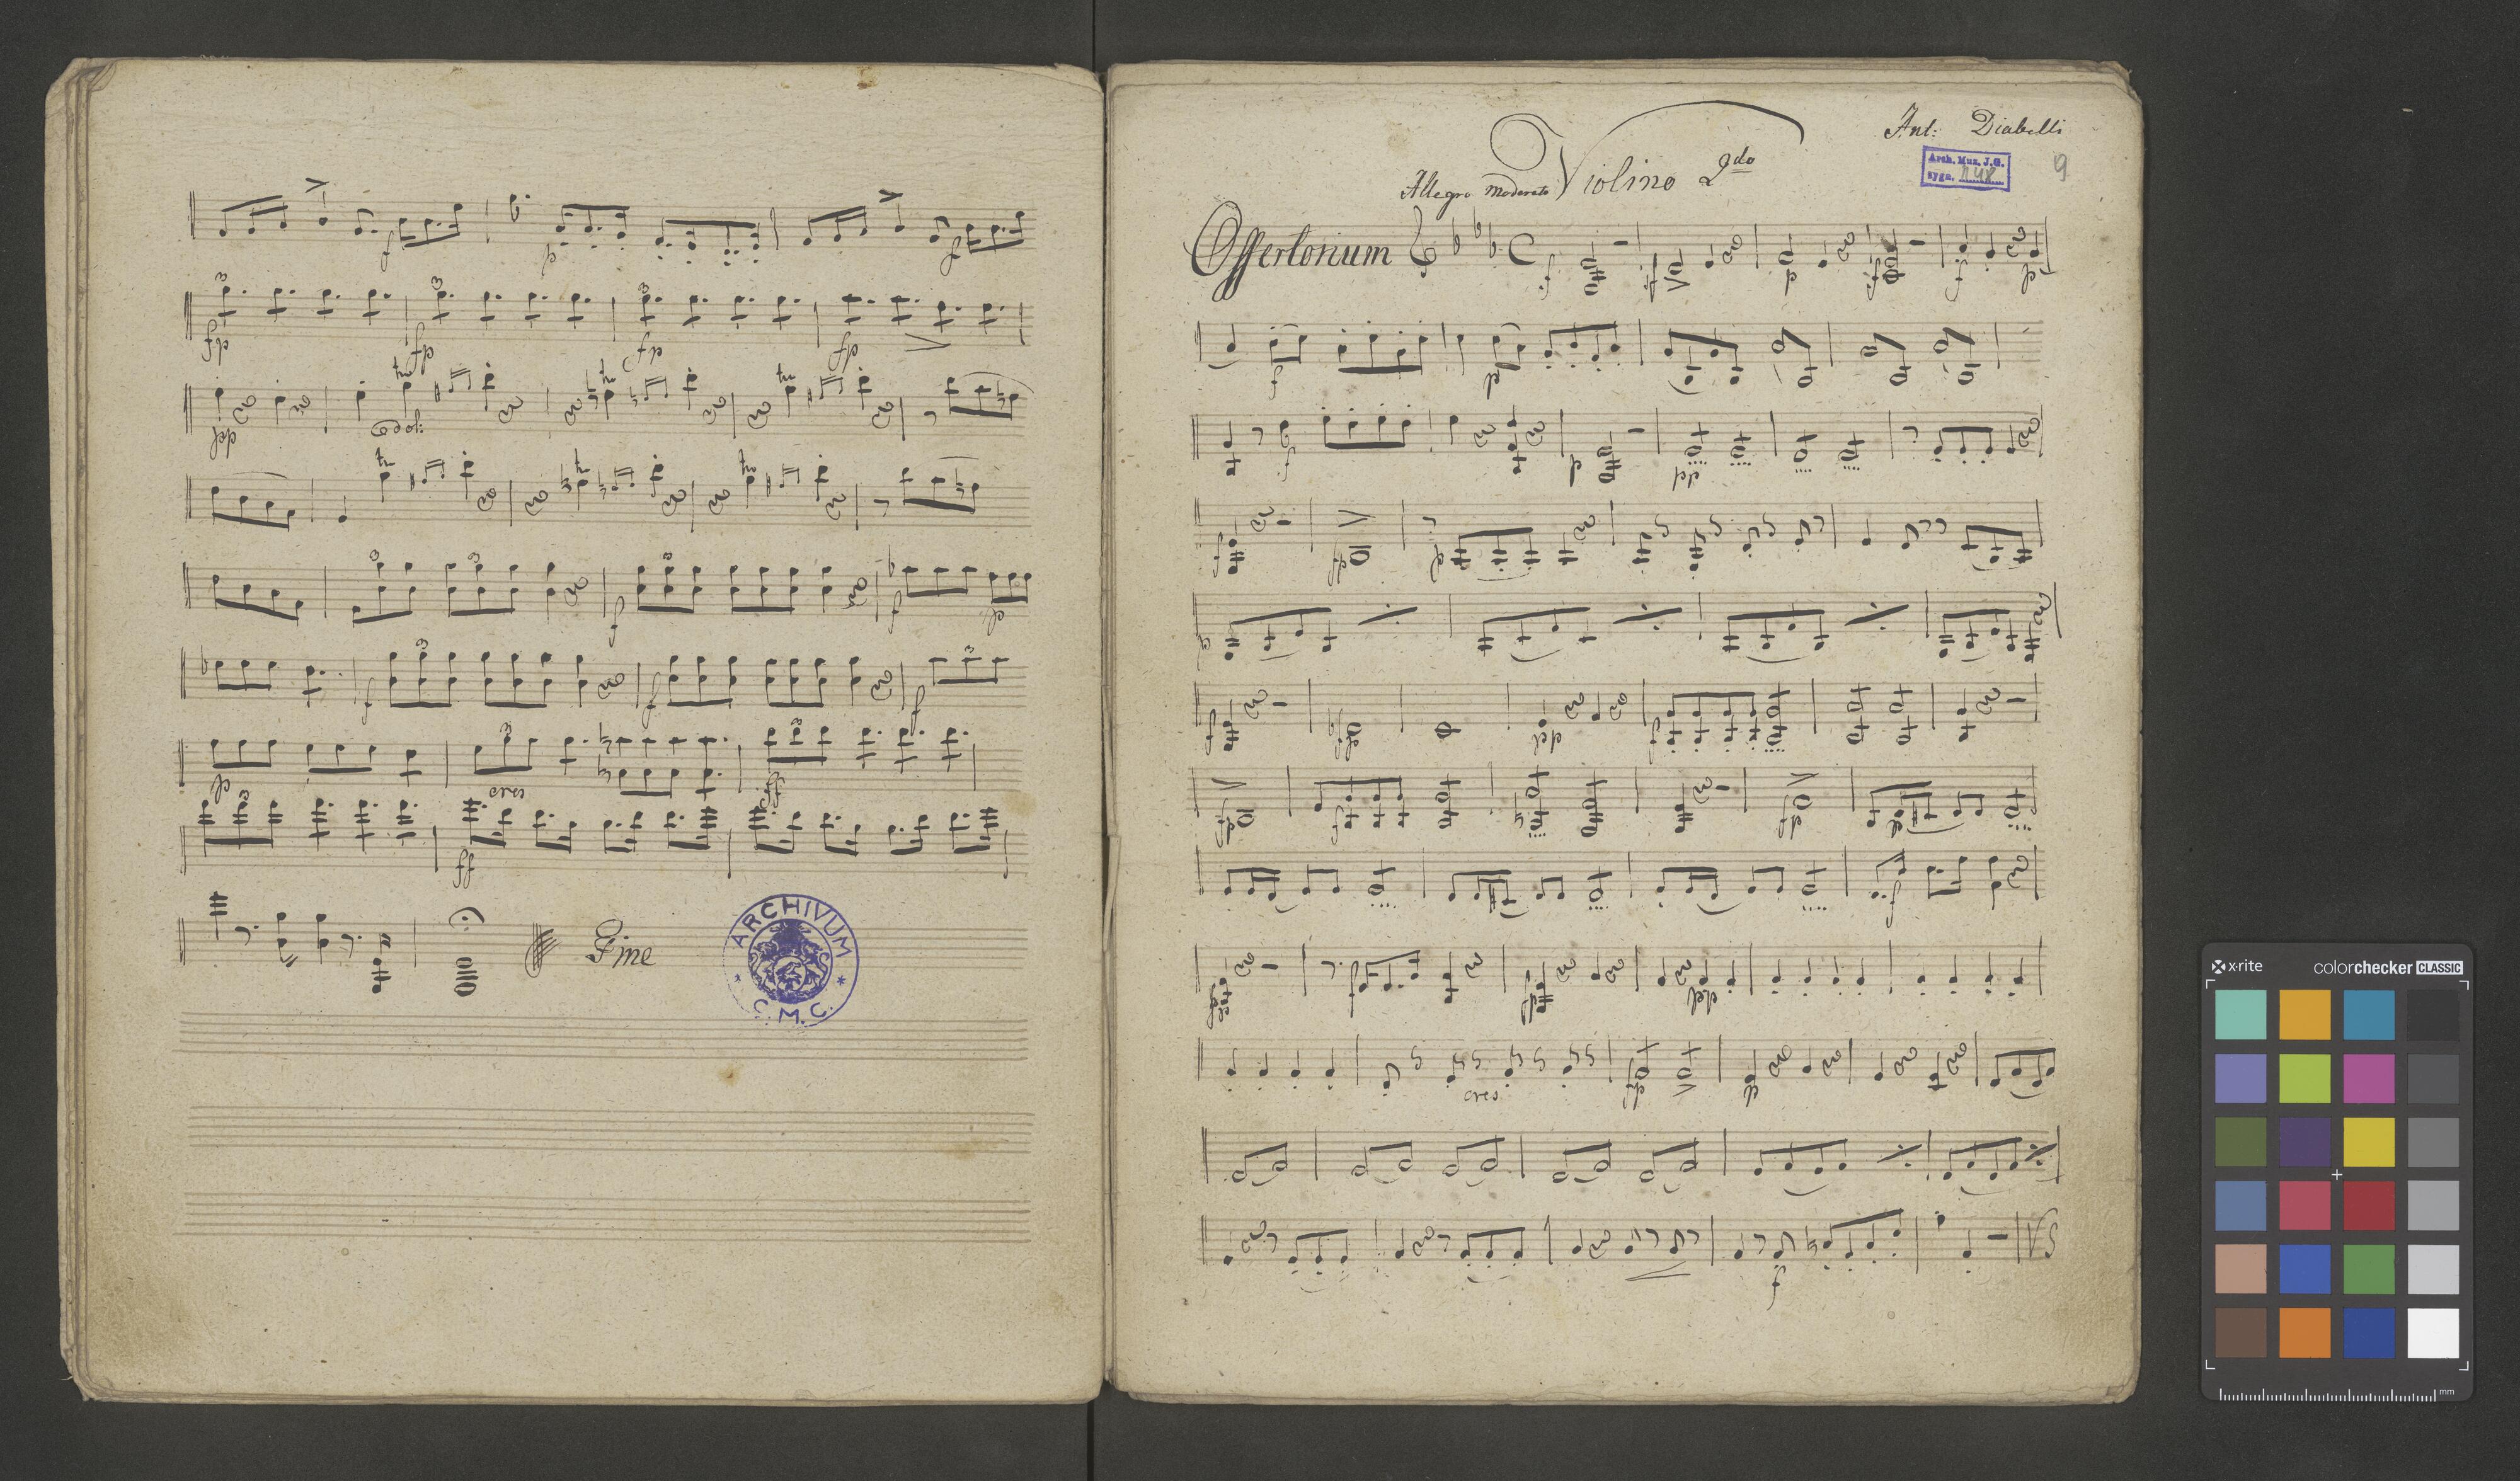 f p f
fp fp fp fp
pp dol:
f f p
f f f
p cres ff
ff
Fine
ARCHIVUM
C. M. C.
Ant: Diabelli
Violino 2do
Arch. Mus. J.G.
sygn.
9
Allegro Moderato
Offertorium
f f p f f p
f p
f p pp
f fp p
p
f fp p f
fp f fp p
f
f
cres fp p
f VS
x-rite colorchecker CLASSIC
mm